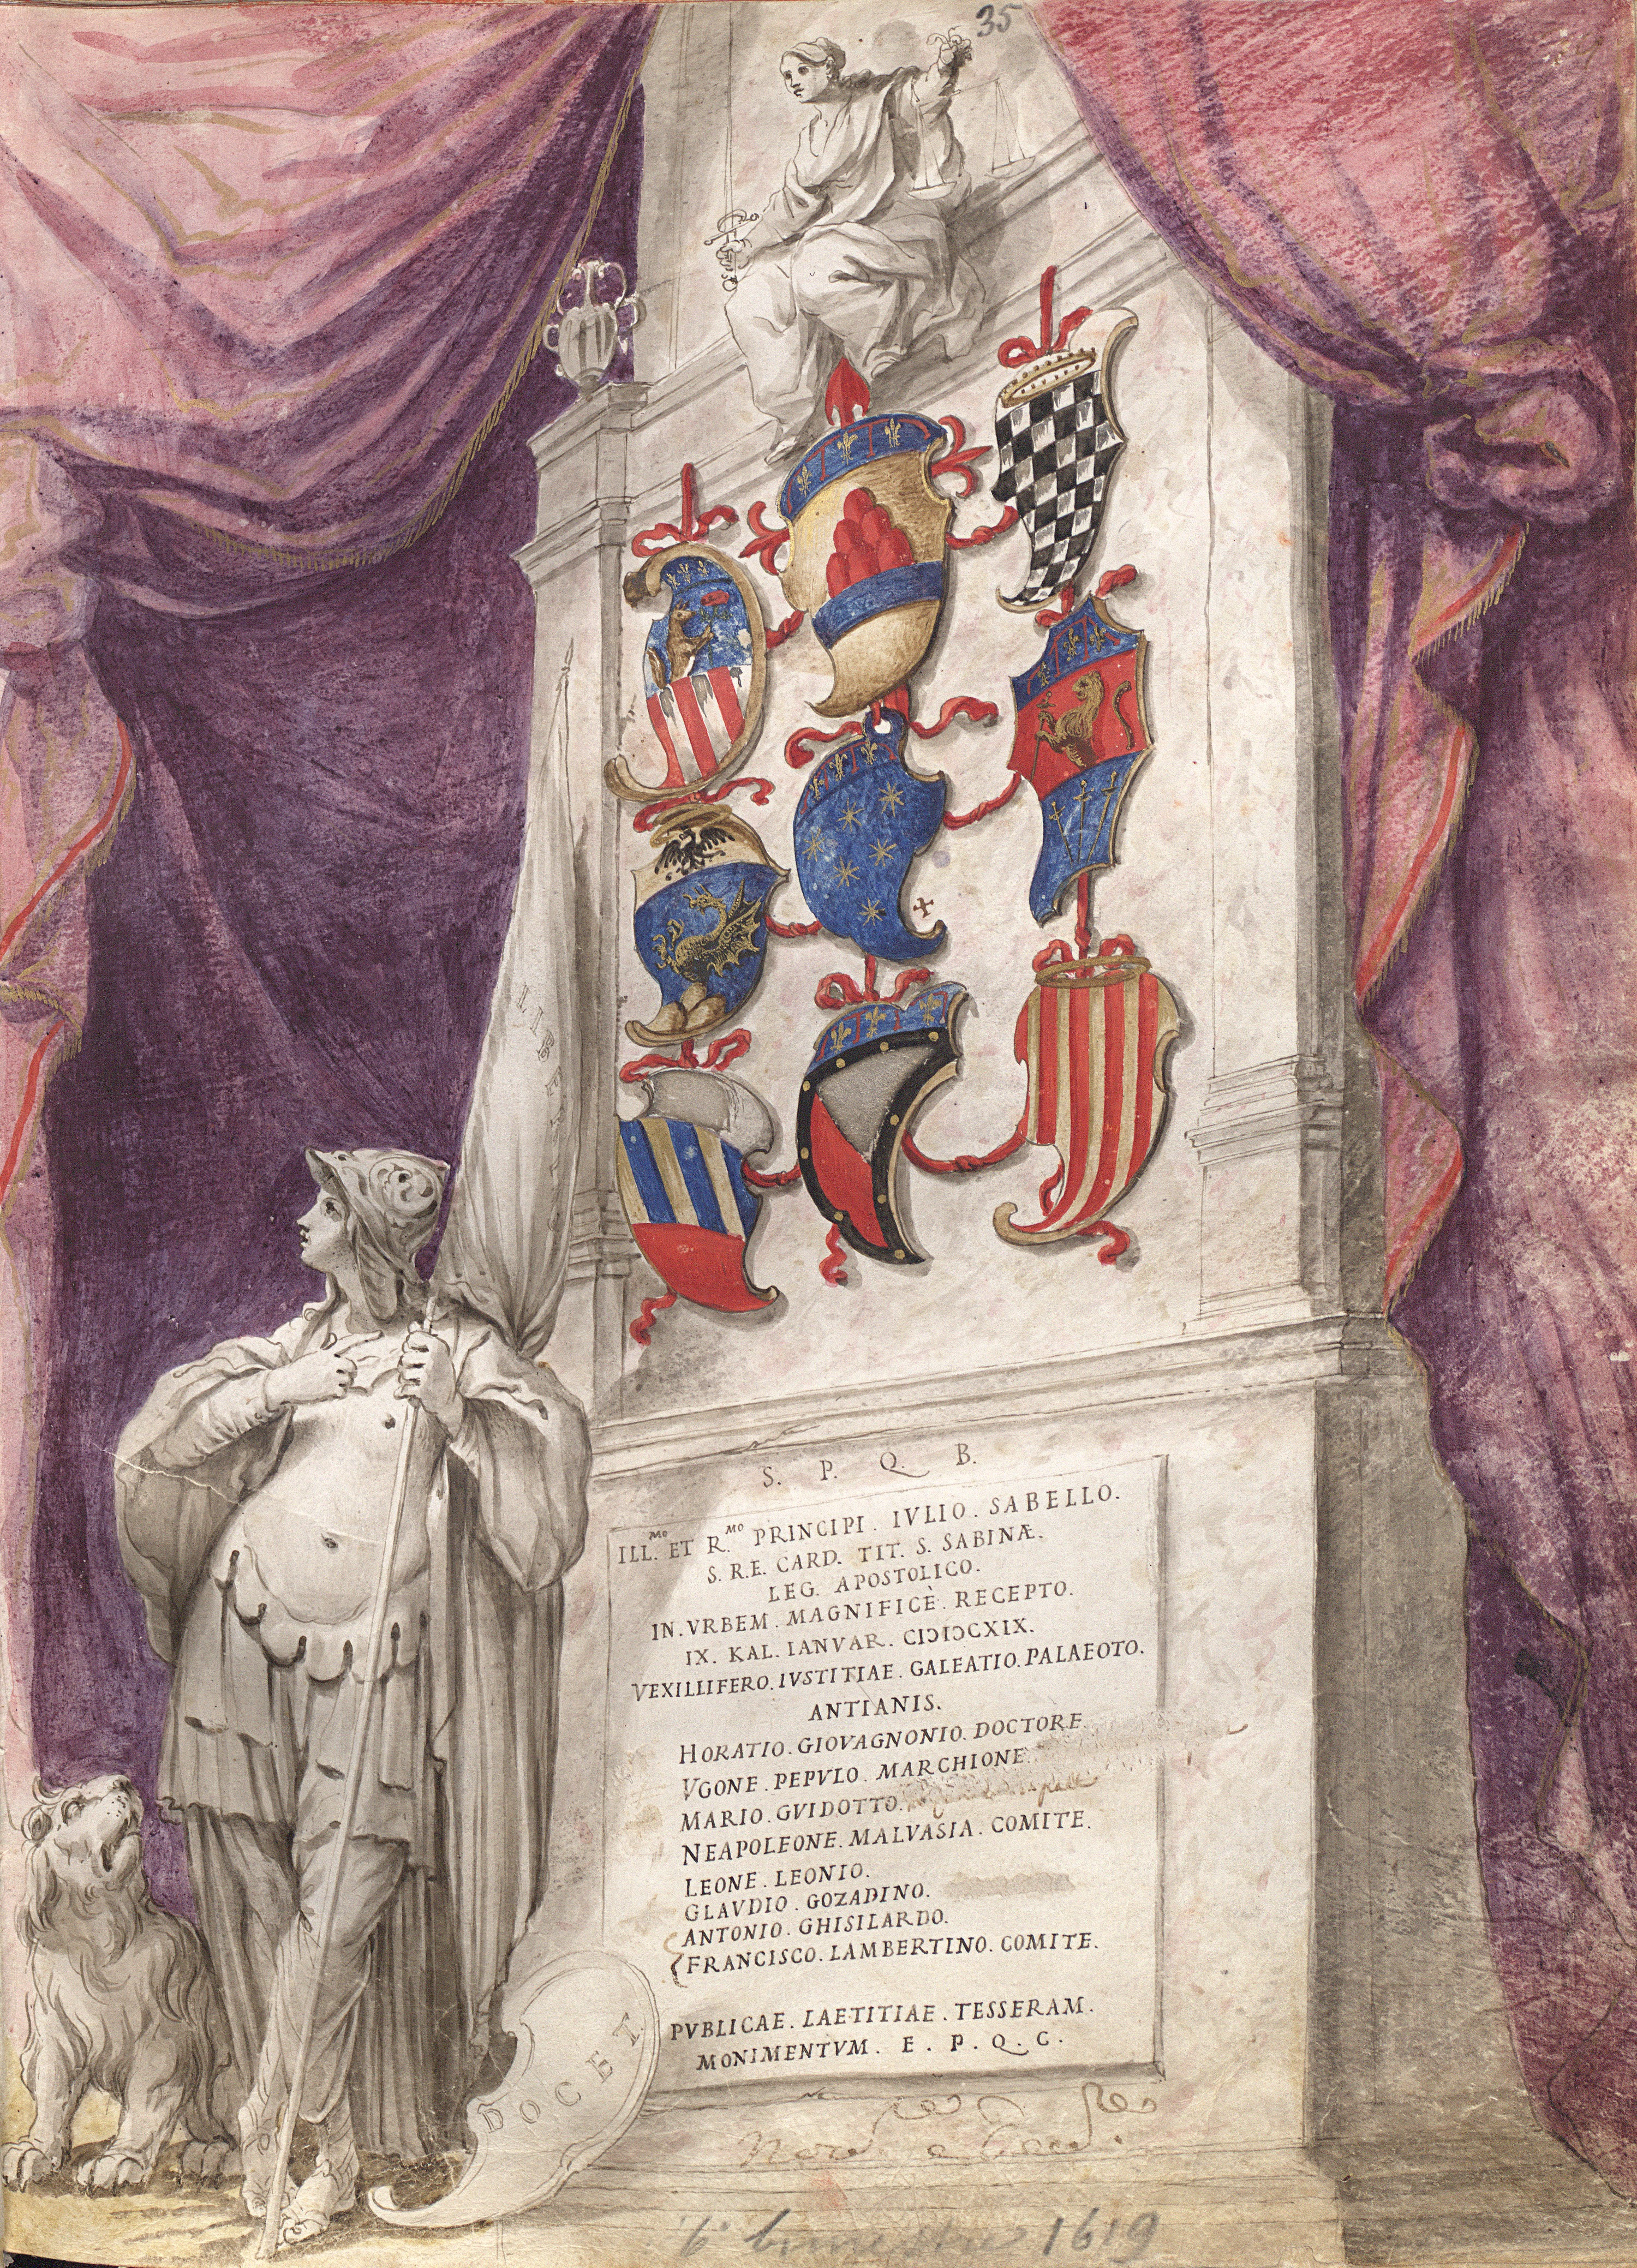 35
LIBERT
S. P. Q. B.
ILL.MO ET R.MO PRINCIPI. IVLIO. SABELLO.
S. R.E. CARD. TIT. S. SABINÆ.
LEG. APOSTOLICO.
IN. VRBEM. MAGNIFICÈ. RECEPTO.
IX. KAL. IANVAR. CIƆIƆCXIX.
VEXILLIFERO. IVSTITIAE. GALEATIO. PALAEOTO.
ANTIANIS.
HORATIO. GIOVAGNONIO. DOCTORE
VGONE. PEPVLO. MARCHIONE
MARIO. GVIDOTTO.
NEAPOLEONE. MALVASIA. COMITE.
LEONE. LEONIO.
GLAVDIO. GOZADINO.
ANTONIO. GHISILARDO.
FRANCISCO. LAMBERTINO. COMITE.
PVBLICAE. LAETITIAE. TESSERAM.
MONIMENTVM. E. P. Q. C.
DOCET
6° bimestre 1619